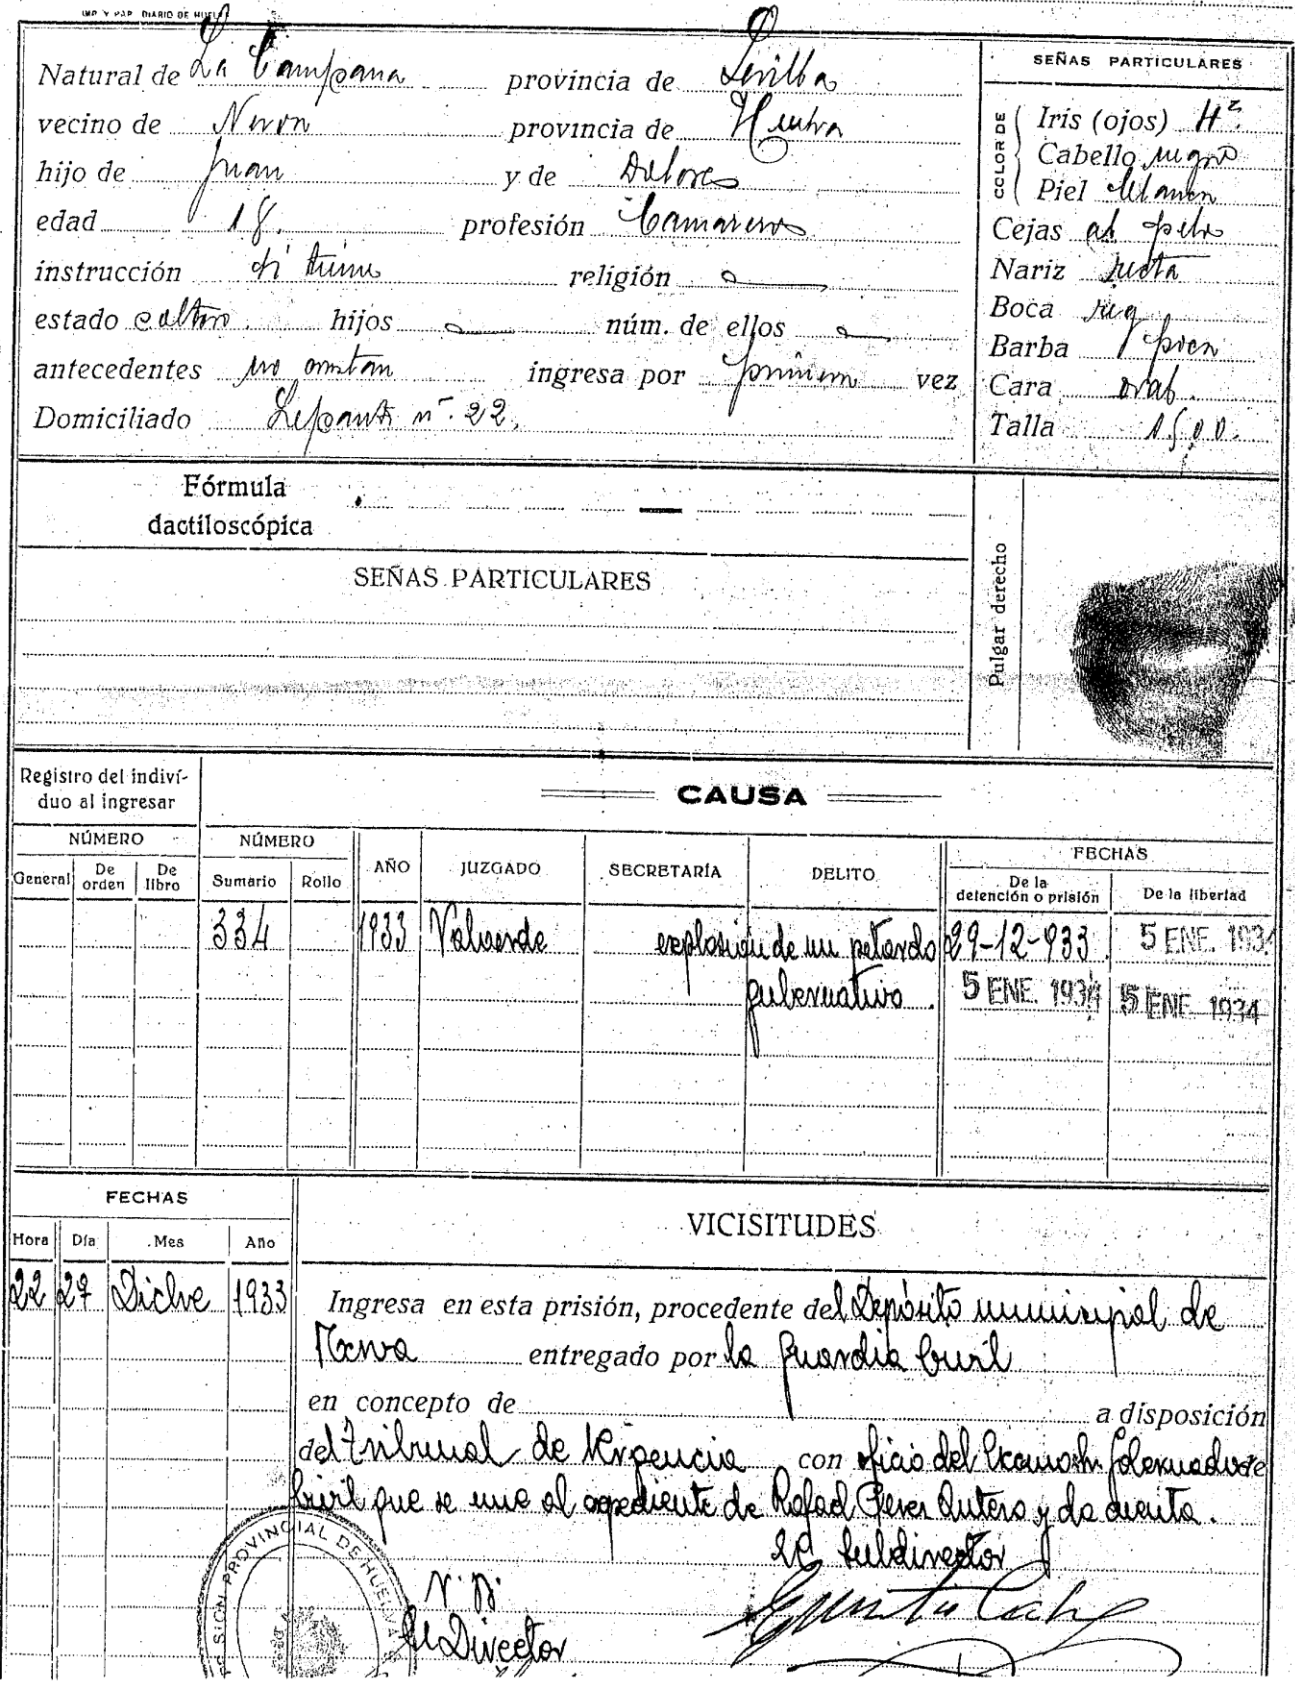 IMP. Y PAP. DIARIO DE HUELVA
Natural de La Campana provincia de Sevilla
vecino de Nerva provincia de Huelva
hijo de Juan y de Dolores
edad 18. profesión Camarero
instrucción si tiene religión
estado soltero hijos núm. de ellos
antecedentes no constan ingresa por primera vez
Domiciliado Lepanto nº. 22.
SEÑAS PARTICULARES
COLOR DE
Iris (ojos)
Cabello negro
Piel blanca
Cejas al pelo
Nariz recta
Boca reg
Barba poca
Cara oval.
Talla
Fórmula
dactiloscópica
SEÑAS PARTICULARES
Pulgar derecho
Registro del indiví-
duo al ingresar
CAUSA
NÚMERO NÚMERO AÑO JUZGADO SECRETARÍA DELITO FECHAS
General De orden De libro Sumario Rollo De la detención o prisión De la libertad
334 1933 Valverde explosión de un petardo 29-12-933 5 ENE. 1934
gubernativo. 5 ENE. 1934 5 ENE. 1934
FECHAS
VICISITUDES
Hora Día Mes Año
22 27 Dicbre 1933
Ingresa en esta prisión, procedente del Depósito municipal de
Nerva entregado por la Guardia Civil
en concepto de a disposición
del Tribunal de Urgencia con oficio del Excmo Sr. Gobernador
Civil que se une al expediente de Rafael Perez Antero y da cuenta.
El Subdirector
Vº. Bº.
El Director
PRISIÓN PROVINCIAL DE HUELVA